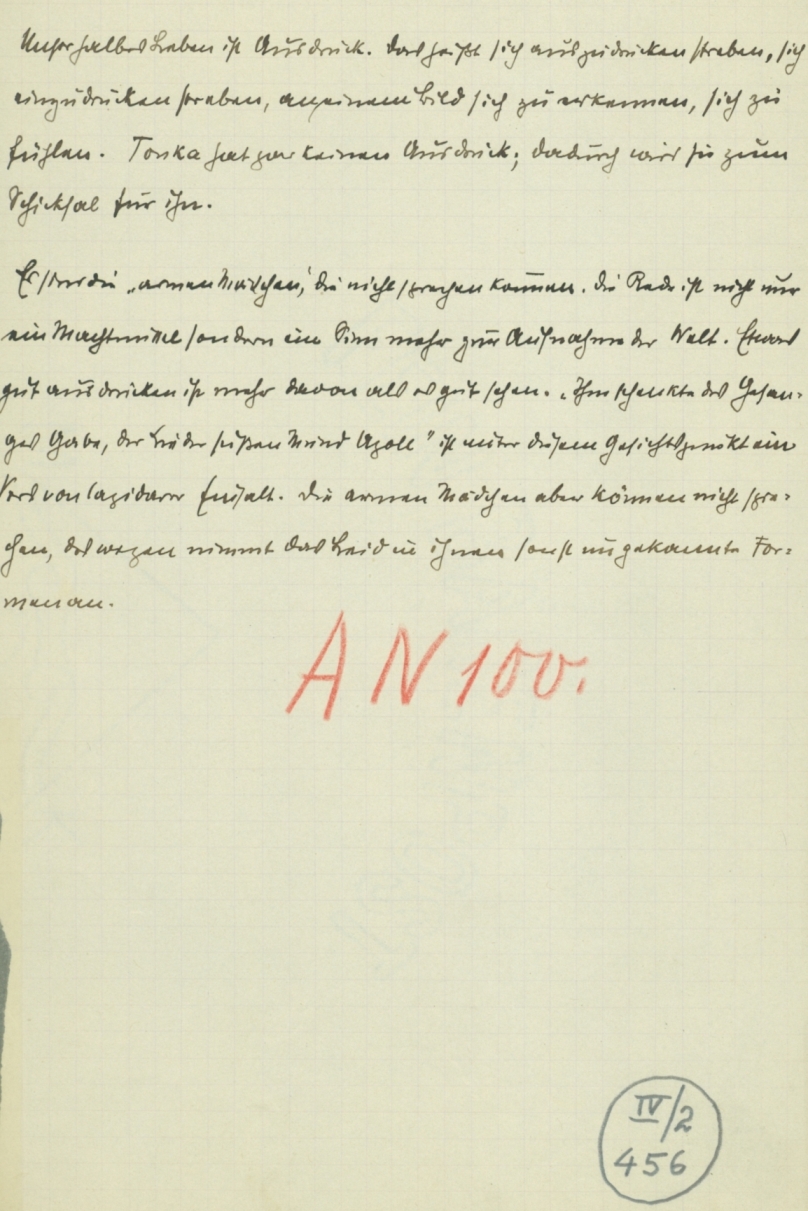 Unser halbes Leben ist Ausdruck. Das heißt sich auszudrücken streben, sich
einzudrücken streben, an einem Bild sich zu erkennen, sich zu
fühlen. Tonka hat gar keinen Ausdruck; dadurch wird sie zum
Schicksal für ihn.
Es sind die „armen Mädchen", die nicht sprechen können. Die Rede ist nicht nur
ein Machtmittel sondern ein Sinn mehr zur Aufnahme der Welt. Etwas
gut ausdrücken ist mehr davon als es gut sehen. „Ihm schenkte des Gesan-
ges Gabe, der Lieder süßen Mund Apoll" ist unter diesem Gesichtspunkt ein
Vers von lapidarer Inhalt. Die armen Mädchen aber können nicht spre-
chen, deswegen nimmt das Leid in ihnen sonst ungekannte For-
men an.
AN 100.
IV/2
456